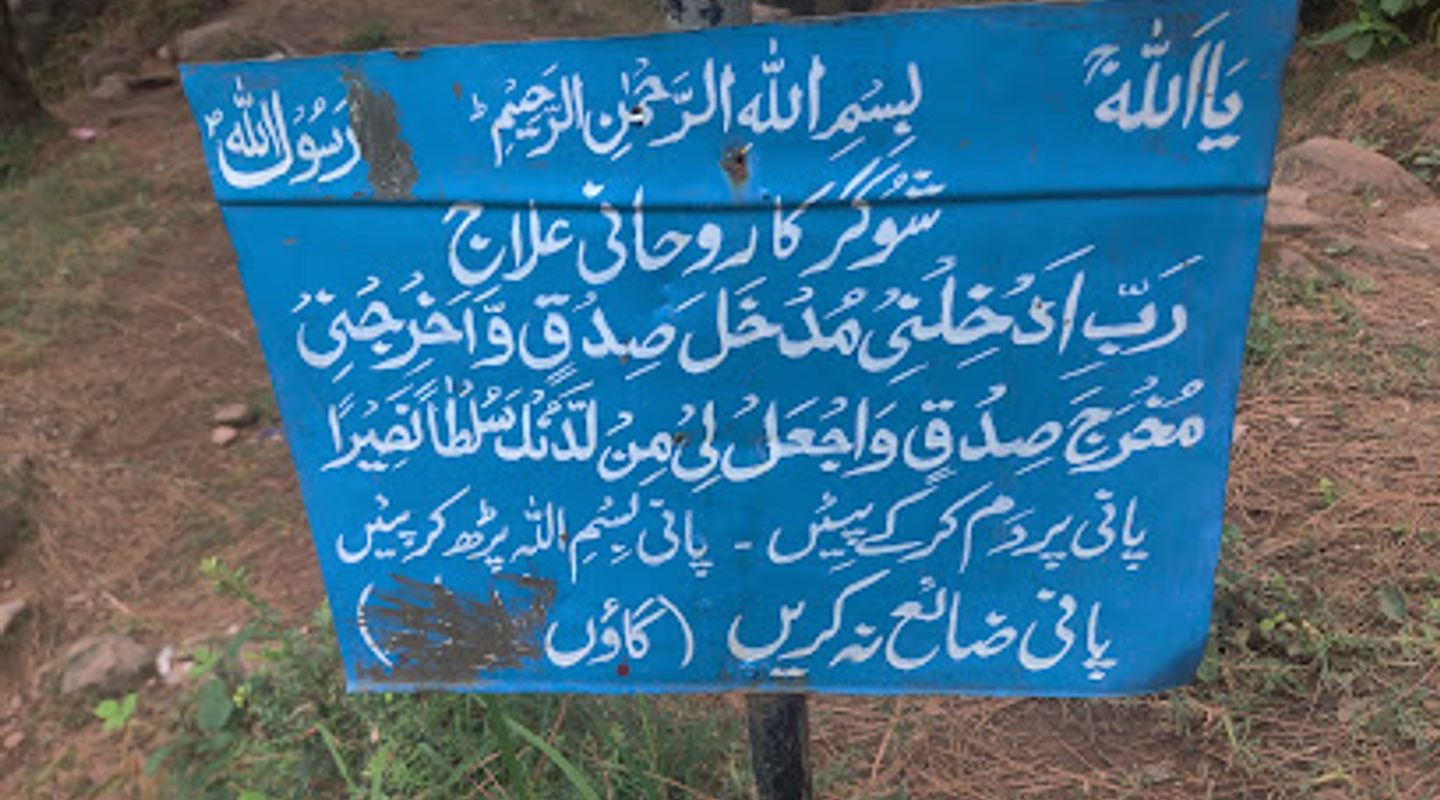 یَا اَللّٰہُ ج بِسْمِ اللّٰہِ الرَّحْمٰنِ الرَّحِیْمِ ط رَسُوْلُ اللّٰہِ ؐ
شوگر کا روحانی علاج
رَبِّ اَدْخِلْنِیْ مُدْخَلَ صِدْقٍ وَّ اَخْرِجْنِیْ
مُخْرَجَ صِدْقٍ وَاجْعَلْ لِیْ مِنْ لَّدُنْکَ سُلْطٰاً نَصِیْرًا
پانی پر دَم کر کے پیئں ۔ پانی بِسْمِ اللہ پڑھ کر پیئں
پانی ضائع نہ کریں (گاؤں )